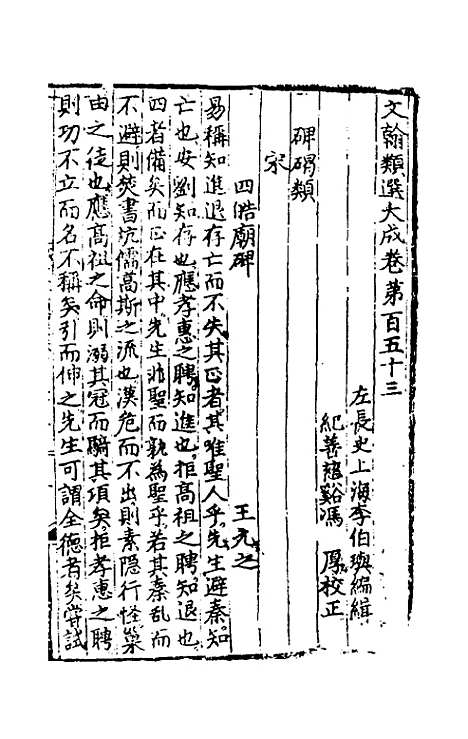 文翰類選大成卷第百五十三
左長史上海李伯璵編緝
紀善慈谿馮　厚校正
碑碣類
宋
四皓廟碑　王元之
易稱知進退存亡而不失其正者其唯聖人乎先生避秦知
亡也安劉知存也應孝惠之聘知進也拒高祖之聘知退也
四者備矣而正在其中先生非聖而孰為聖乎若其秦亂而
不避則焚書坑儒高斯之流也漢危而不出則素隐行怪巢
由之徒也應高祖之命則溺其冠而騎其項矣拒孝惠之聘
則功不立而名不稱矣引而伸之先生可謂全德者矣嘗試